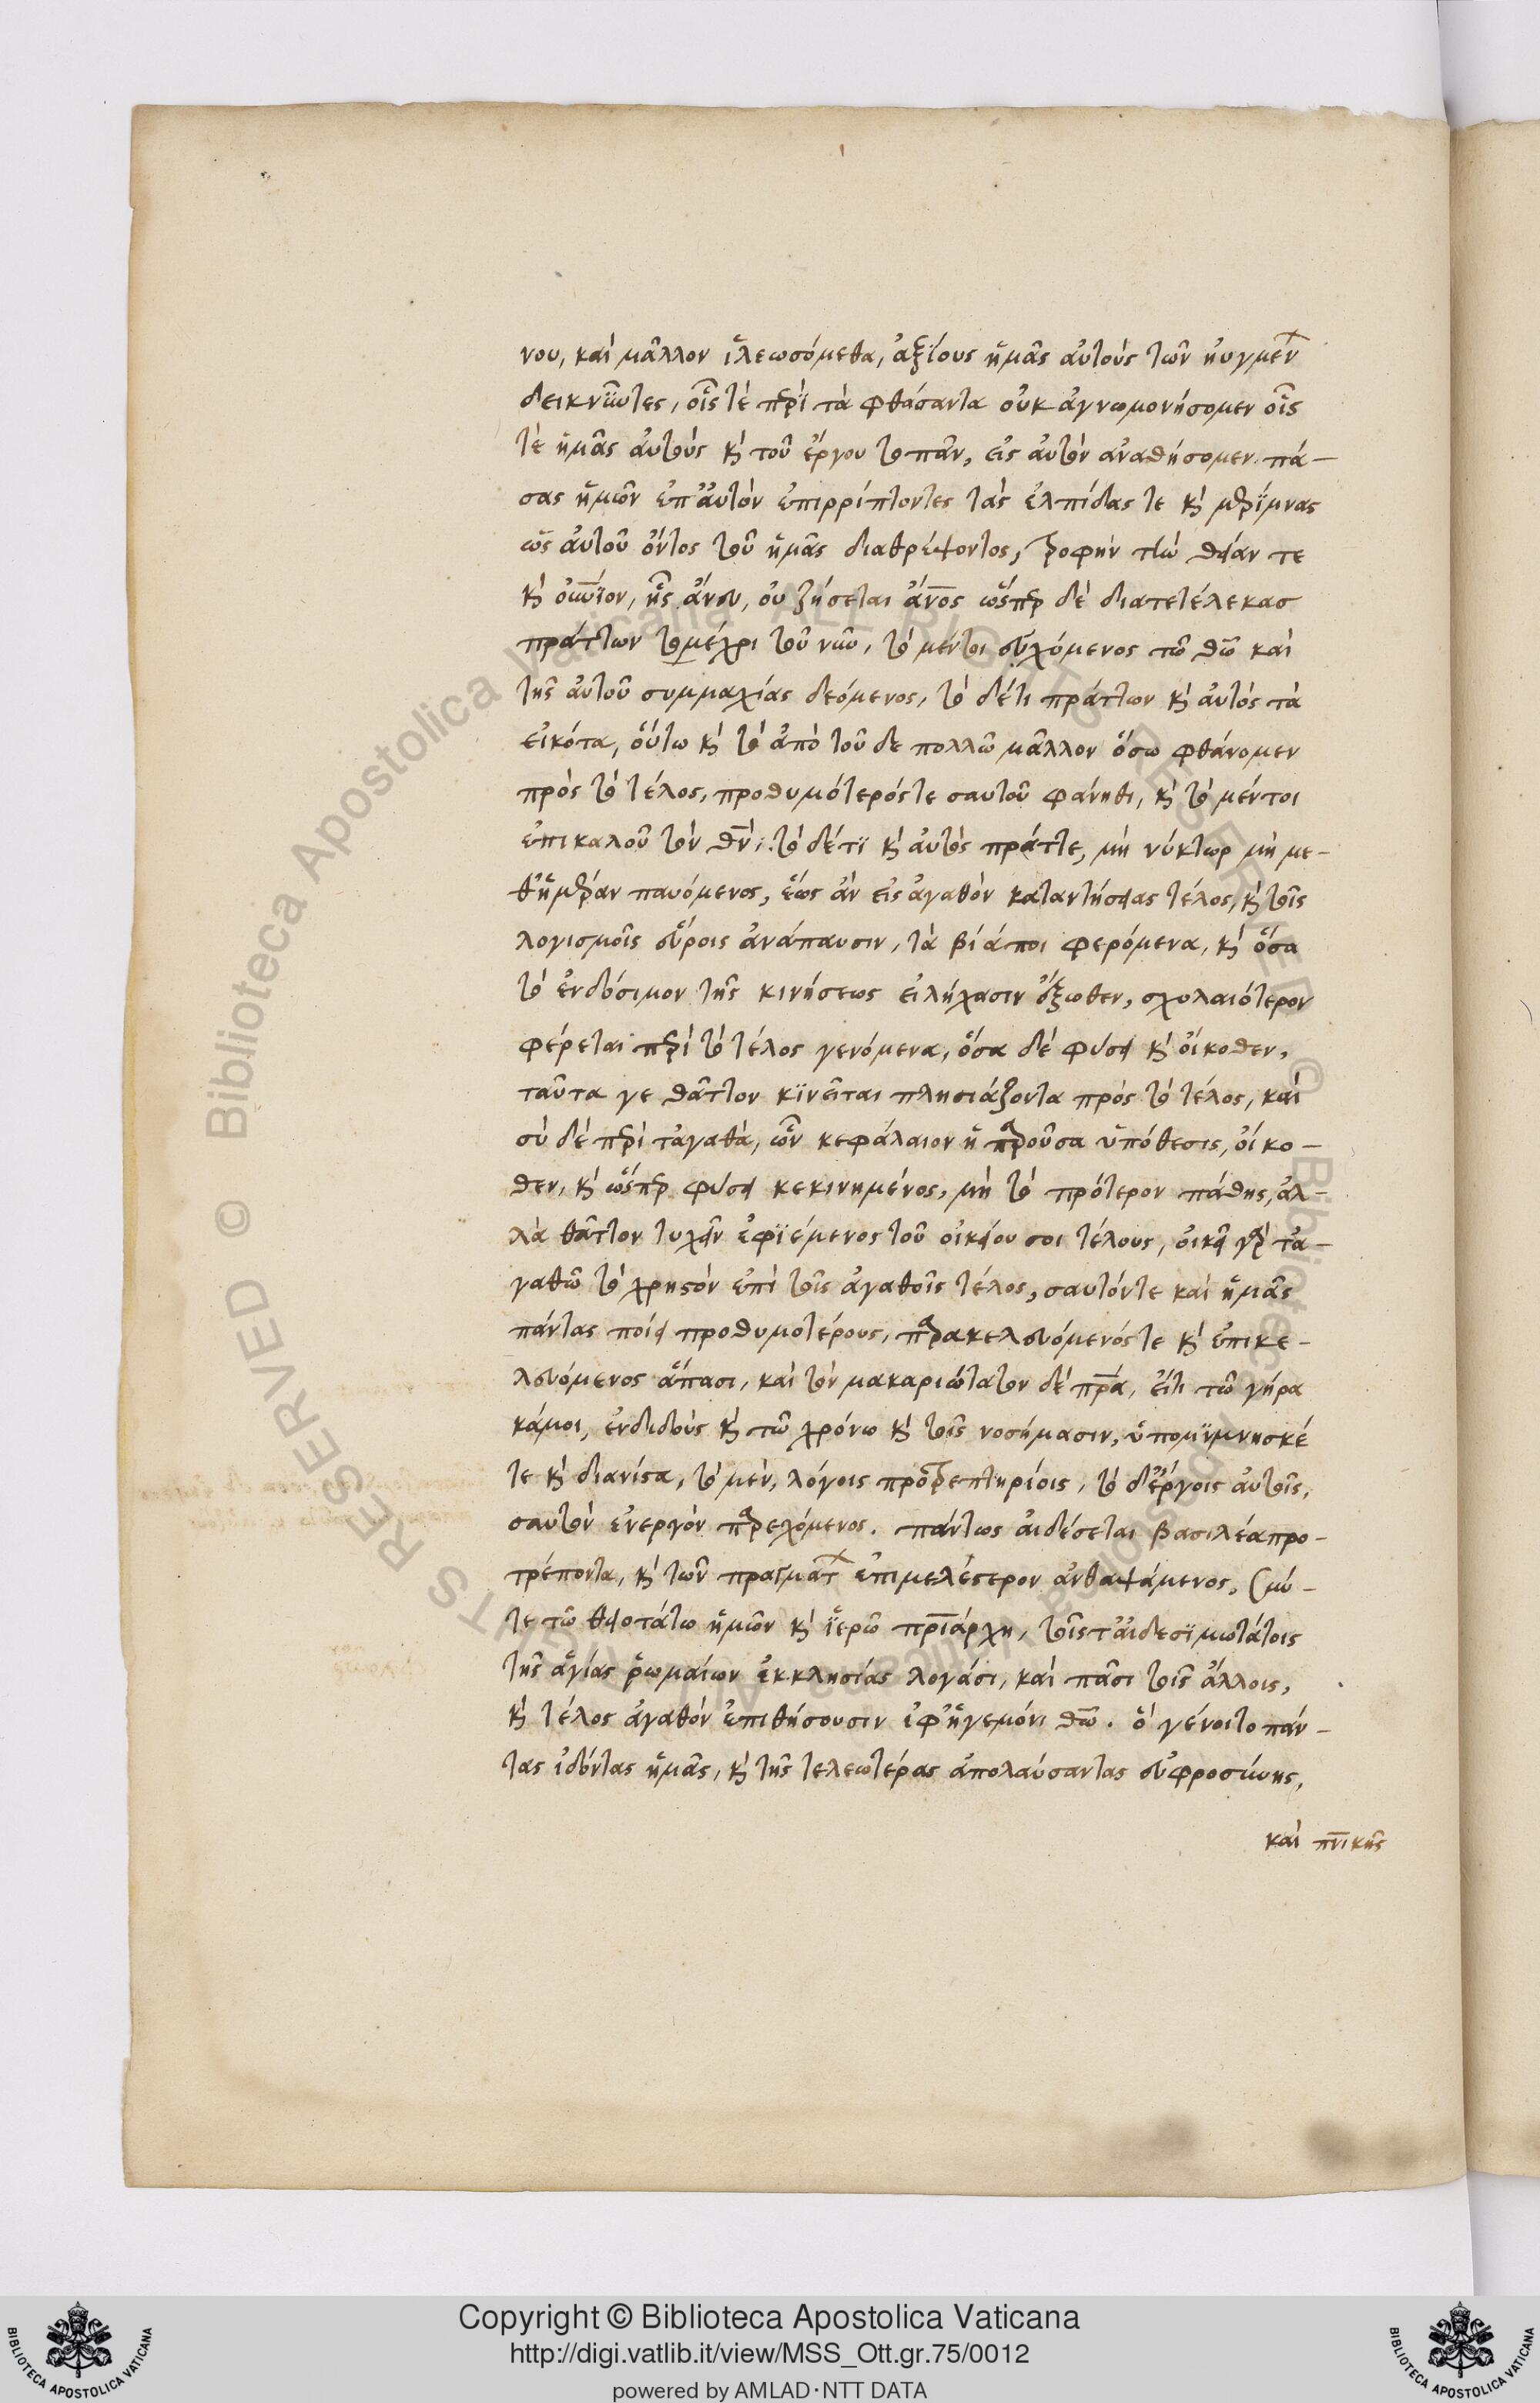 νου, καὶ μᾶλλον ἱλεωσόμεθα, ἀξίους ἡμᾶς αὐτοὺς τῶν ηὐγμεν
δεικνῦντες, οἷς τὲ πρὶ τὰ φθάσαντα οὐκ ἀγνωμονήσομεν οἷς
τὲ ἡμᾶς αὐτοὺς κὴ τοῦ ἔργου τοπᾶν, εἰς αὐτὸν ἀναθήσομεν. πά-
σας ἡμῶν ἐπ' αὐτὸν ἐπιρρίπτοντες τὰς ἐλπίδας τε κὴ μερίμνας
ὡς αὐτοῦ ὄντος τοῦ ἡμᾶς διαθρέψοντος, τροφὴν τὴν θείαν τε
κὴ ἧς ἄνευ, οὐ ζήσεται ἄνος ὥσπερ δὲ διατετέλεκας
πράττων τομέχρι τοῦ νῦν, τὸ μέντοι εὐχόμενος τῶ θῶ καὶ
τῆς αὐτοῦ συμμαχίας δεόμενος, τὸ δέτι πράττων κὴ αὐτὸς τὰ
εἰκότα, οὕτω κὴ τὸ ἀπὸ τοῦ δε πολλῶ μᾶλλον ὅσω φθάνομεν
πρὸς τὸ τέλος, προθυμότερόςτε σαυτοῦ φάνηθι, κὴ τὸ μέντοι
ἐπικαλοῦ τὸν θν· τὸ δέτϊ κὴ αὐτὸς πράττε, μὴ νύκτωρ μὴ με-
θἡμέραν παυόμενος, ἕως ἂν εἰς ἀγαθὸν καταντήσειας τέλος, κὴ τοῖς
λογισμοῖς εὕροις ἀνάπαυσιν, τὰ βίᾳ ποι φερόμενα, κὴ ὅσα
τὸ ἐνδόσιμον τῆς κινήσεως εἰλήχασιν ἔξωθεν, σχολαιότερον
φέρεται πρὶ τὸ τέλος γενόμενα, ὅσα δὲ φύσει κὴ οἴκοθεν,
ταῦτα γε θᾶττον κϊνεῖται πλησιάζοντα πρὸς τὸ τέλος, καὶ
σὺ δὲ πρὶ τἀγαθὰ, ὧν κεφάλαιον ἡ παροῦσα ὑπόθεσις, οἴκο-
θεν, κὴ ὥσπερ φύσει κεκινημένος, μὴ τὸ πρότερον πάθης, ἀλ-
λὰ θᾶττον τυχεῖν ἐφϊέμενος τοῦ οἰκείου σοι τέλους, οἰκεῖ γὰρ τἀ-
γαθῶ τὸ χρηστὸν ἐπὶ τοῖς ἀγαθοῖς τέλος, σαυτόντε καὶ ἡμᾶς
πάντας ποίει προθυμοτέρους, παρακελευόμενόςτε κὴ ἐπικε-
λευόμενος ἅπασι, καὶ τὸν μακαριώτατον δὲ πρα, εἴτι τῶ γήρα
κάμοι, ἐνδιδοὺς κὴ τῶ χρόνω κὴ τοῖς νοσήμασιν, ὑπομϊμνησκέ
τε κὴ διανίστα, τὸ μὲν, λόγοις προτρεπτηρίοις, τὸ δἔργοις αὐτοῖς,
σαυτὸν ἐνεργὸν παρεχόμενος. πάντως αἰδέσεται βασιλέα προ-
τρέποντα, κὴ τῶν πραγματ ἐπιμελέστερον ἀνθαψάμενος, σύν-
τε τῶ θειοτάτω ἡμῶν κὴ ἱερῶ πριάρχη, τοῖς τ' αἰδεσϊμωτάτοις
τῆς ἁγίας ῥωμαίων ἐκκλησίας λογάσι, καὶ πᾶσι τοῖς ἄλλοις,
κὴ τέλος ἀγαθὸν ἐπιθήσουσιν ἐφἡγεμόνι θῶ. ὃ γένοιτο πάν-
τας ἰδόντας ἡμᾶς, κὴ τῆς τελεωτέρας ἀπολαύσαντας εὐφροσύνης,
καὶ πνικῆς
Copyright © Biblioteca Apostolica Vaticana
http://digi.vatlib.it/view/MSS_Ott.gr.75/0012
powered by AMLAD·NTT DATA